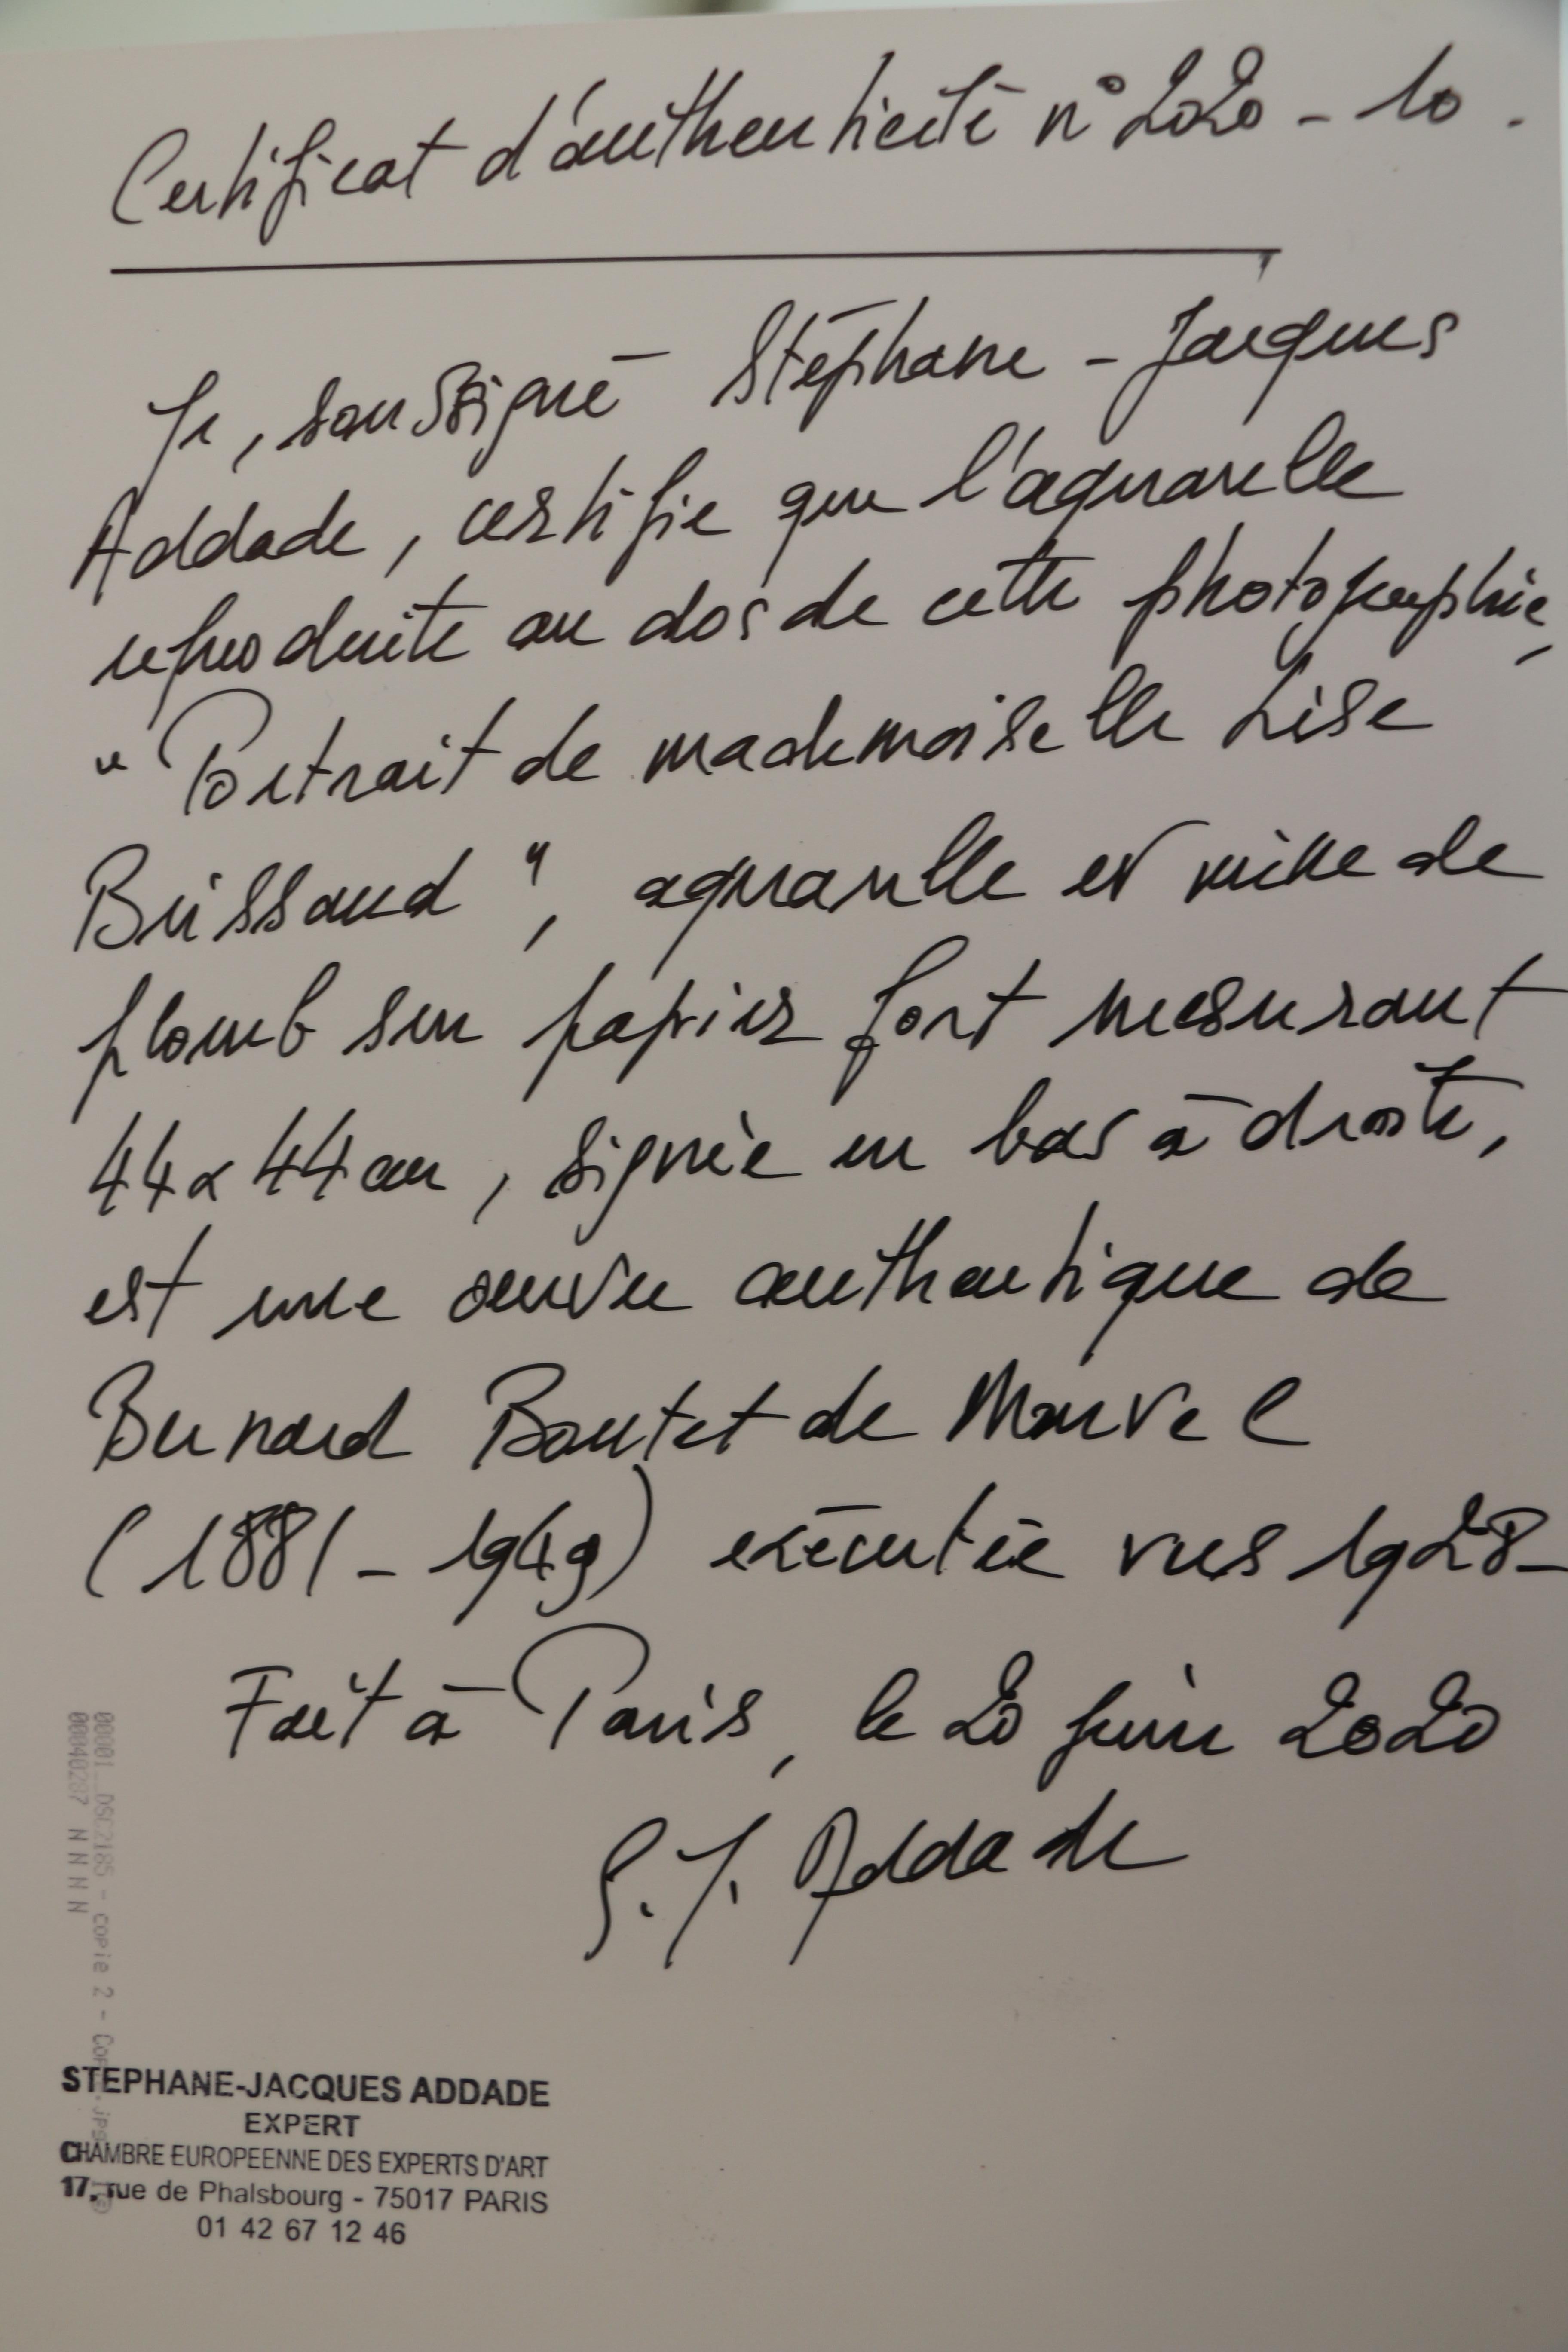 Certificat d'authenticité n° 2020 - 10 .
Je, soussigné Stéphane - Jacques
Addade, certifie que l'aquarelle
reproduite au dos de cette photographie,
" Portrait de mademoiselle Lise
Brissaud ", aquarelle et mine de
plomb sur papier fort mesurant
44 x 44 cm, signée en bas à droite,
est une œuvre authentique de
Bernard Boutet de Monvel
(1881 - 1949) exécutée vers 1928 -
Fait à Paris, le 20 juin 2020
S. J. Addade
00001 DSC2185 - copie 2 -
00040287 N N N N
STEPHANE-JACQUES ADDADE
EXPERT
CHAMBRE EUROPEENNE DES EXPERTS D'ART
17, rue de Phalsbourg - 75017 PARIS
01 42 67 12 46